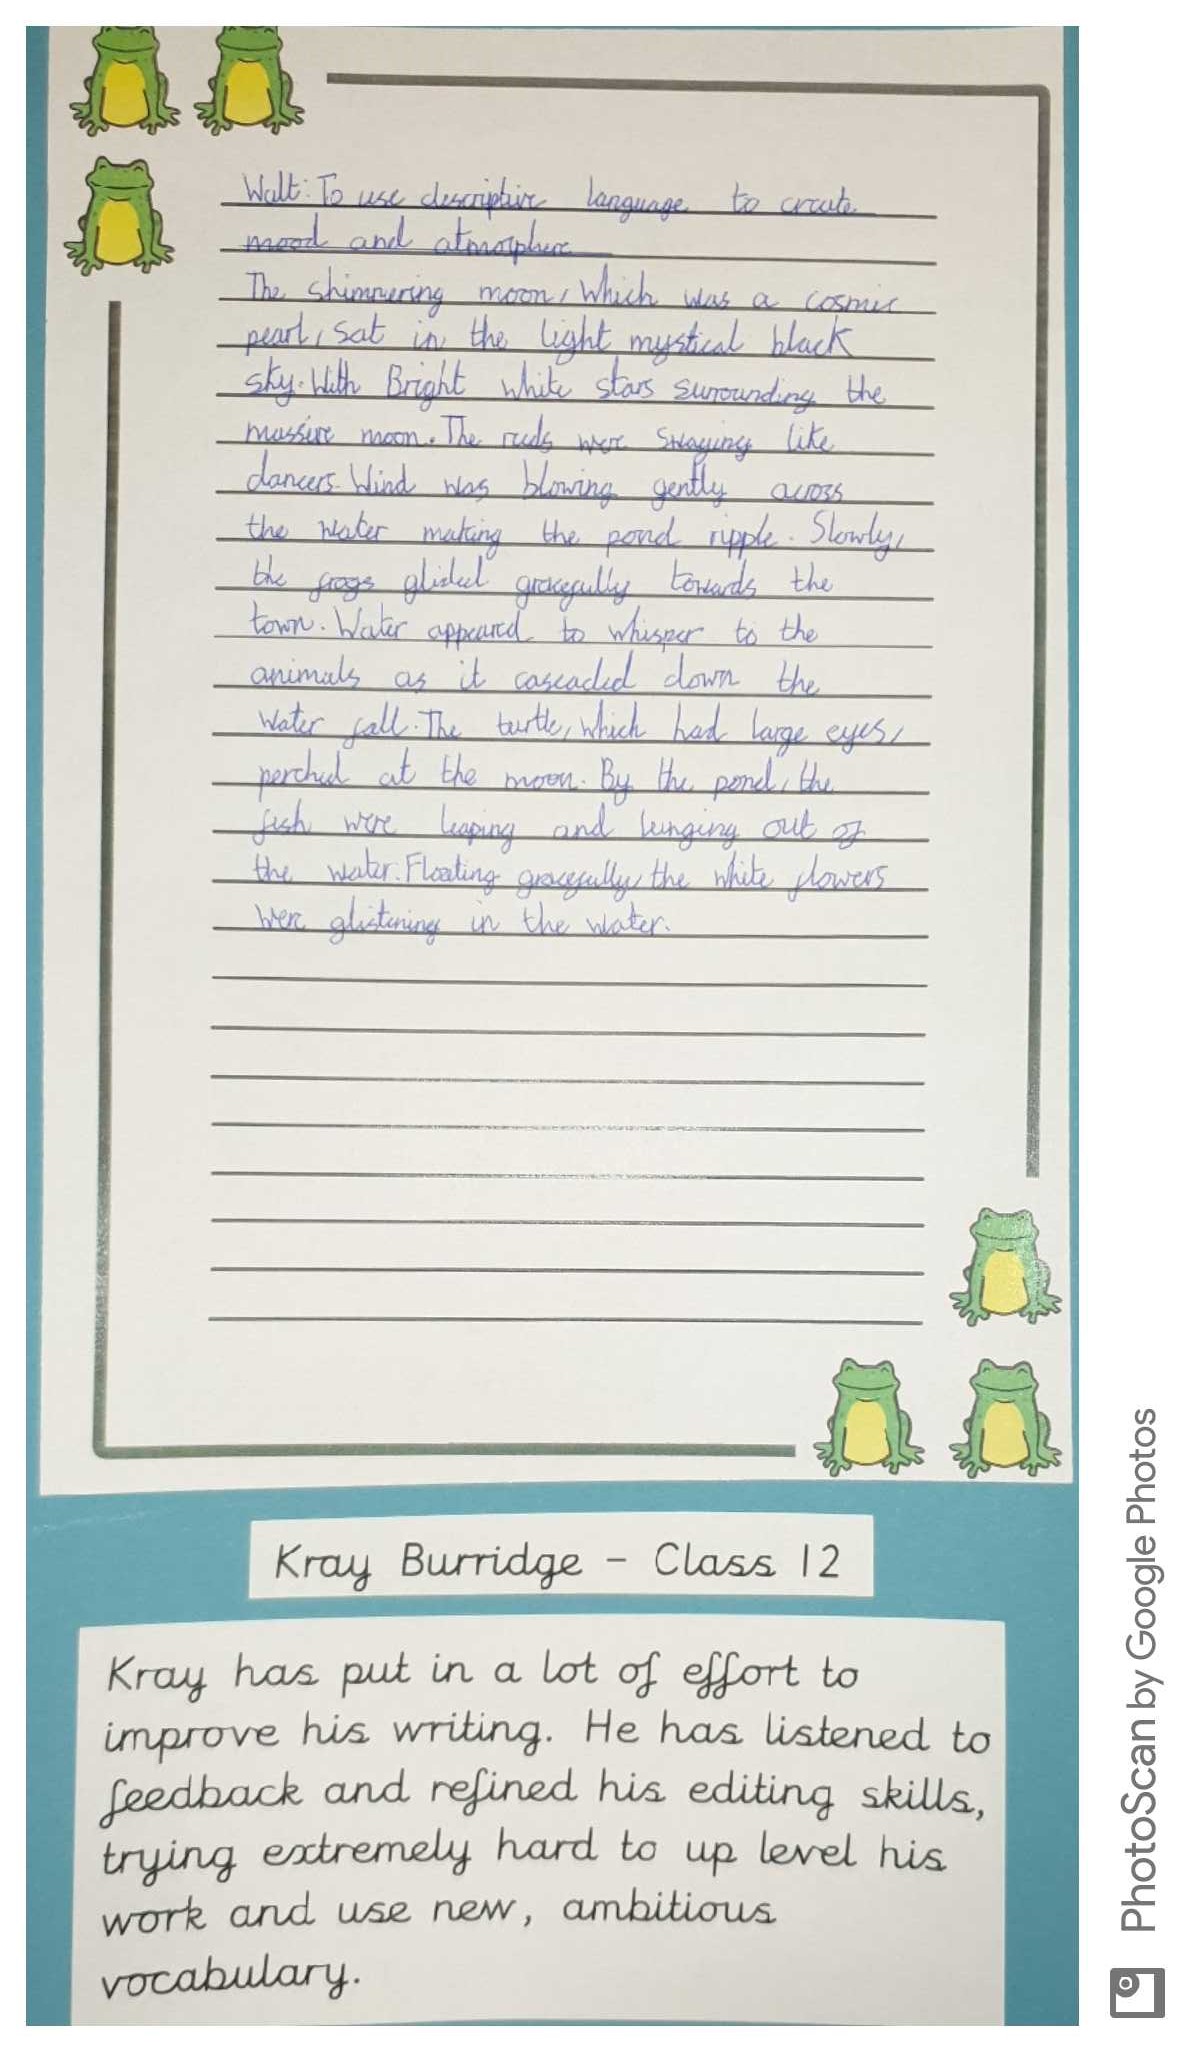 Walt: To use descriptive language to create
mood and atmosphere
The shimmering moon, which was a cosmic
pearl, sat in the light mystical black
sky. With Bright white stars surrounding the
massive moon. The reeds were swaying like
dancers. Wind was blowing gently across
the water making the pond ripple. Slowly,
the frogs glided gracefully towards the
town. Water appeared to whisper to the
animals as it cascaded down the
water fall. The turtle, which had large eyes,
perched at the moon. By the pond, the
fish were leaping and lunging out of
the water. Floating gracefully, the white flowers
were glistening in the water.
Kray Burridge - Class 12
Kray has put in a lot of effort to
improve his writing. He has listened to
feedback and refined his editing skills,
trying extremely hard to up level his
work and use new, ambitious
vocabulary.
PhotoScan by Google Photos